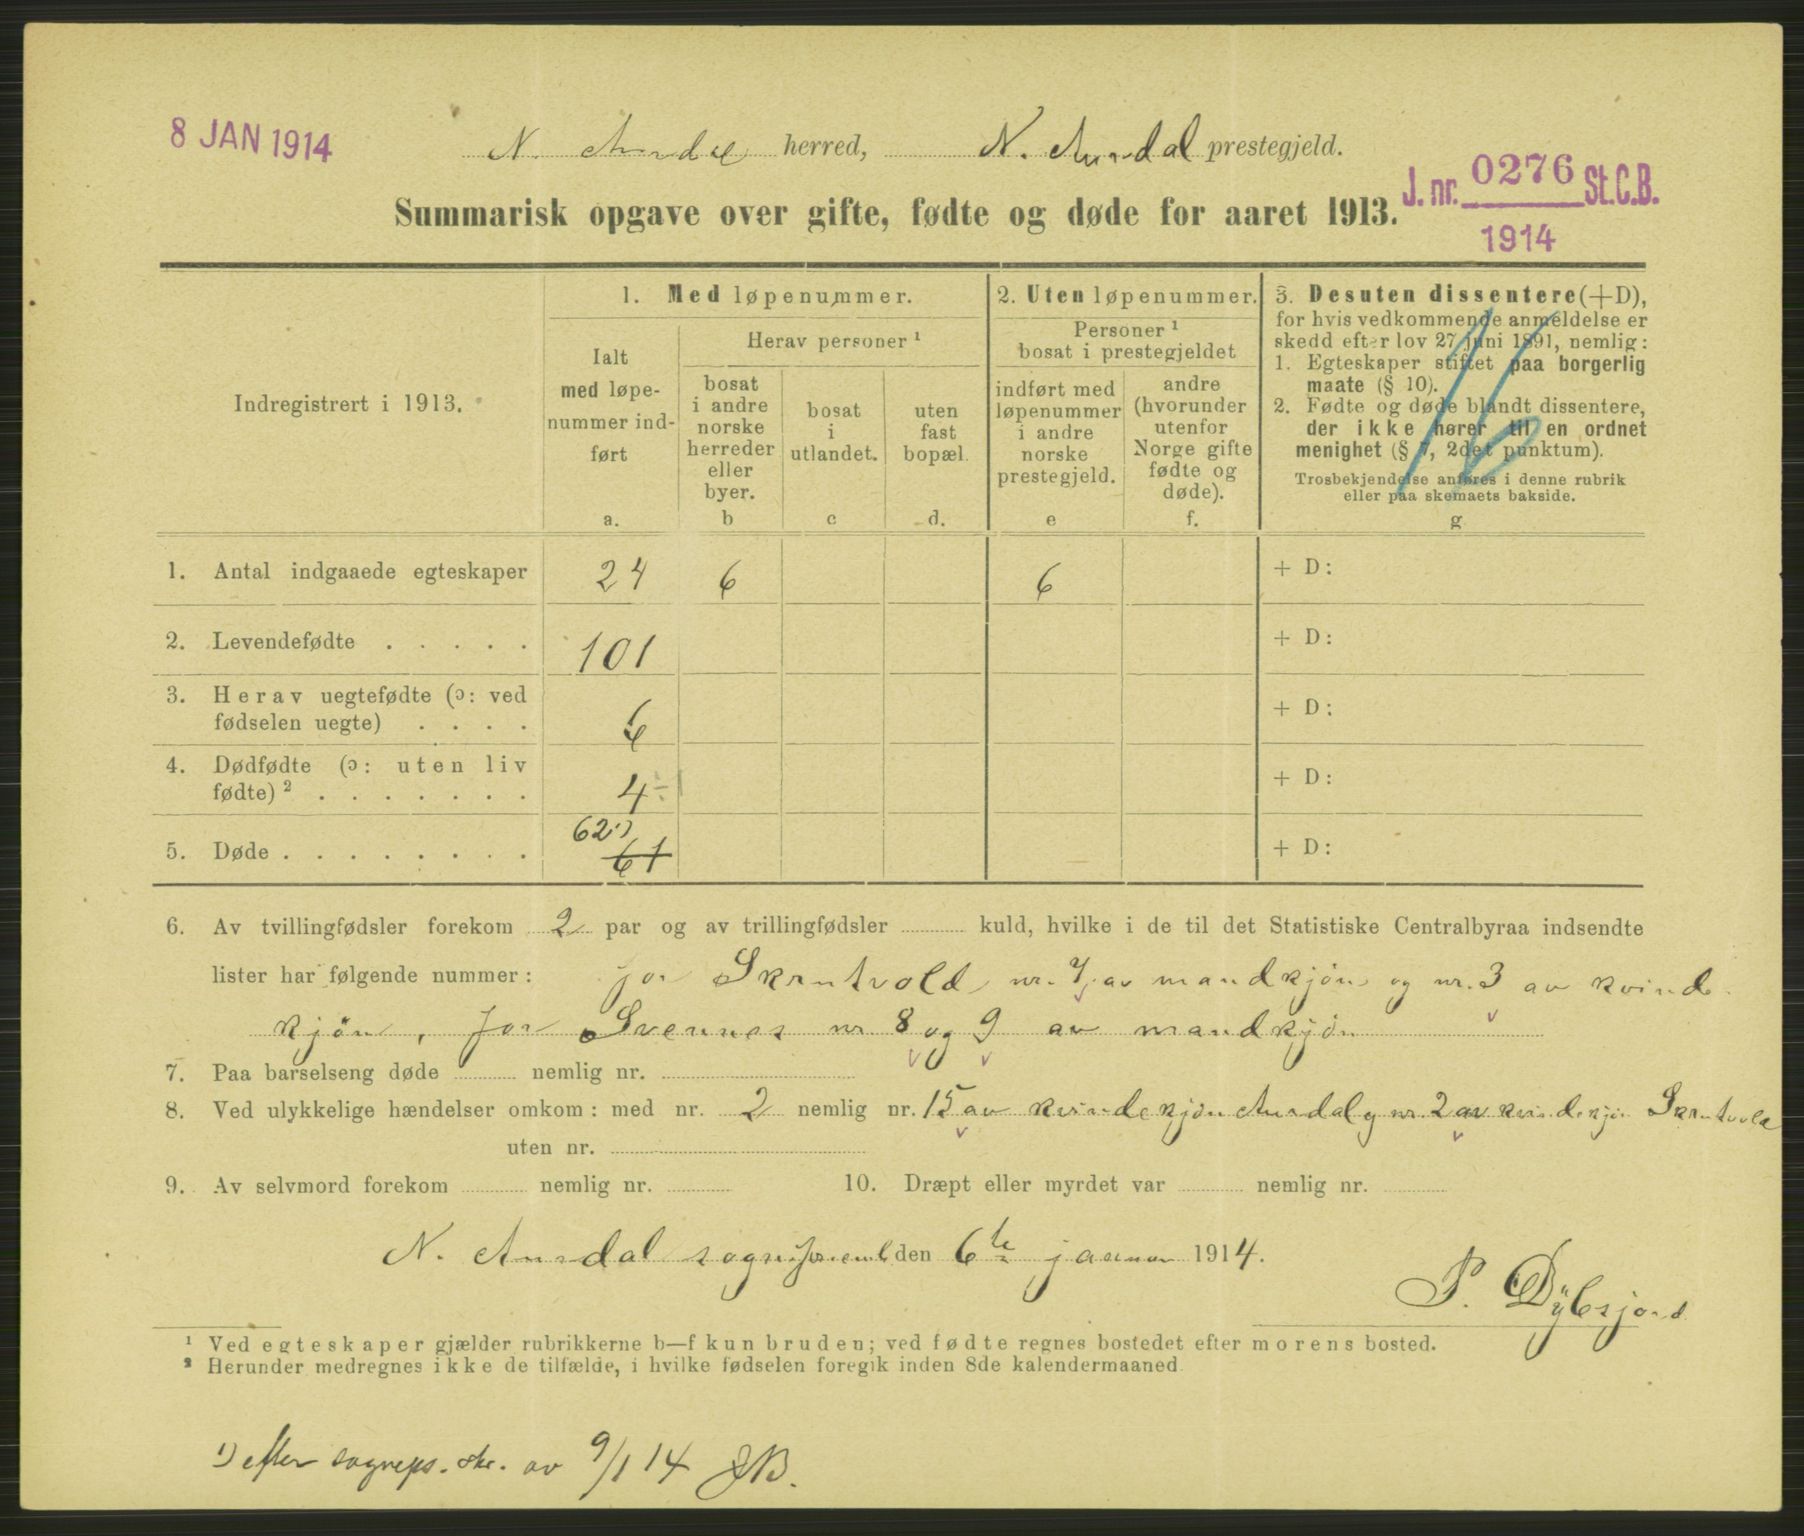 8 JAN 1914
N. Aurdal herred, N. Aurdal prestegjeld.
J. nr. 0276 St.C.B.
1914
Summarisk opgave over gifte, fødte og døde for aaret 1913.
Indregistrert i 1913.
1. Med løpenummer.
Ialt
med løpe-
nummer ind-
ført
a.
Herav personer ¹
bosat
i andre
norske
herreder
eller
byer.
b
bosat
i
utlandet.
c
uten
fast
bopæl.
d.
2. Uten løpenummer.
Personer ¹
bosat i prestegjeldet
indført med
løpenummer
i andre
norske
prestegjeld.
e
andre
(hvorunder
utenfor
Norge gifte
fødte og
døde).
f.
3. Desuten dissentere (+D),
for hvis vedkommende anmeldelse er
skedd efter lov 27 juni 1891, nemlig:
1. Egteskaper stiftet paa borgerlig
maate (§ 10).
2. Fødte og døde blandt dissentere,
der ikke hører til en ordnet
menighet (§ 7, 2det punktum).
Trosbekjendelse anføres i denne rubrik
eller paa skemaets bakside.
g
16
1. Antal indgaaede egteskaper 24 6 6 + D:
2. Levendefødte . . . . . 101 + D:
3. Herav uegtefødte (ɔ: ved
fødselen uegte) . . . . 6 + D:
4. Dødfødte (ɔ: uten liv
fødte) ² . . . . . . . 4 ÷ 1 + D:
62 ¹)
5. Døde . . . . . . . . . 61 + D:
6. Av tvillingfødsler forekom 2 par og av trillingfødsler kuld, hvilke i de til det Statistiske Centralbyraa indsendte
lister har følgende nummer: for Skrutvold nr. 7 av mandkjøn og nr. 3 av kvind
kjøn, for Svennes nr 8 og 9 av mandkjøn
7. Paa barselseng døde nemlig nr.
8. Ved ulykkelige hændelser omkom: med nr. 2 nemlig nr. 15 av kvindekjøn Aurdal og nr. 2 av kvindekjøn Skrutvold
uten nr.
9. Av selvmord forekom nemlig nr. 10. Dræpt eller myrdet var nemlig nr.
N. Aurdal den 6te januar 1914.
P. Dybsjord
¹ Ved egteskaper gjælder rubrikkerne b—f kun bruden; ved fødte regnes bostedet efter morens bosted.
² Herunder medregnes ikke de tilfælde, i hvilke fødselen foregik inden 8de kalendermaaned
¹) efter sogneps. skr. av 9/1 14 JB.